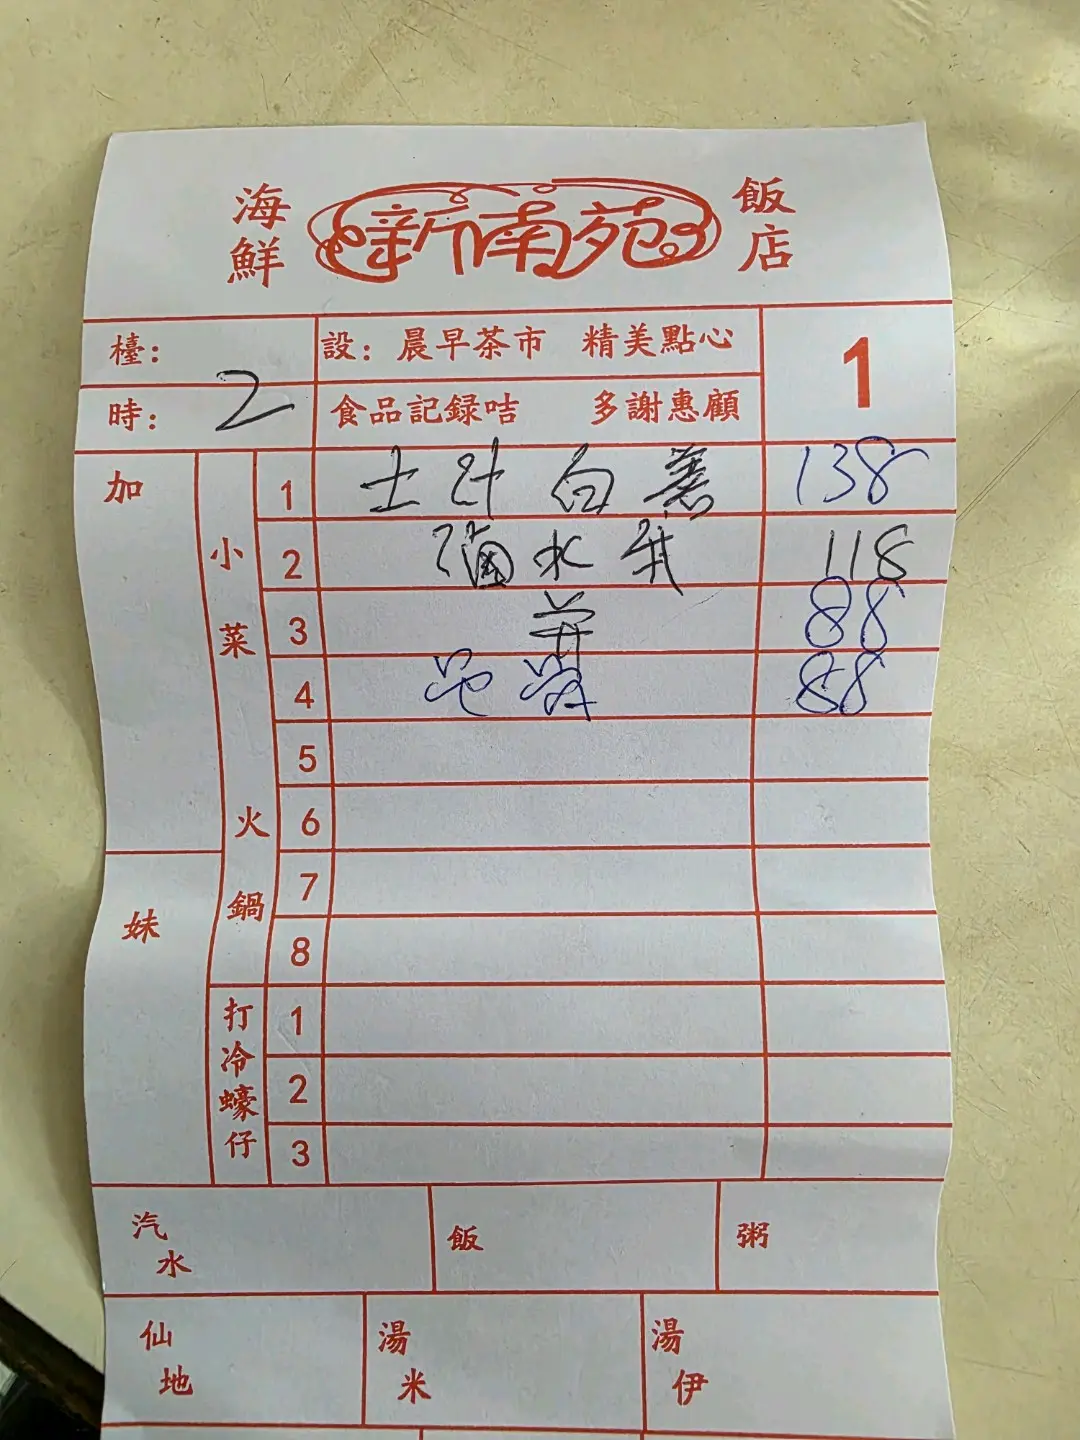 海鮮 新南苑 飯店
檯：
設：晨早茶市 精美點心
1
時：
2
食品記録咭 多謝惠顧
加
小菜火鍋
1 138
2 水 118
3 88
4 88
5
6
7
8
妹
打冷蠔仔
1
2
3
汽水 飯 粥
仙地 湯米 湯伊